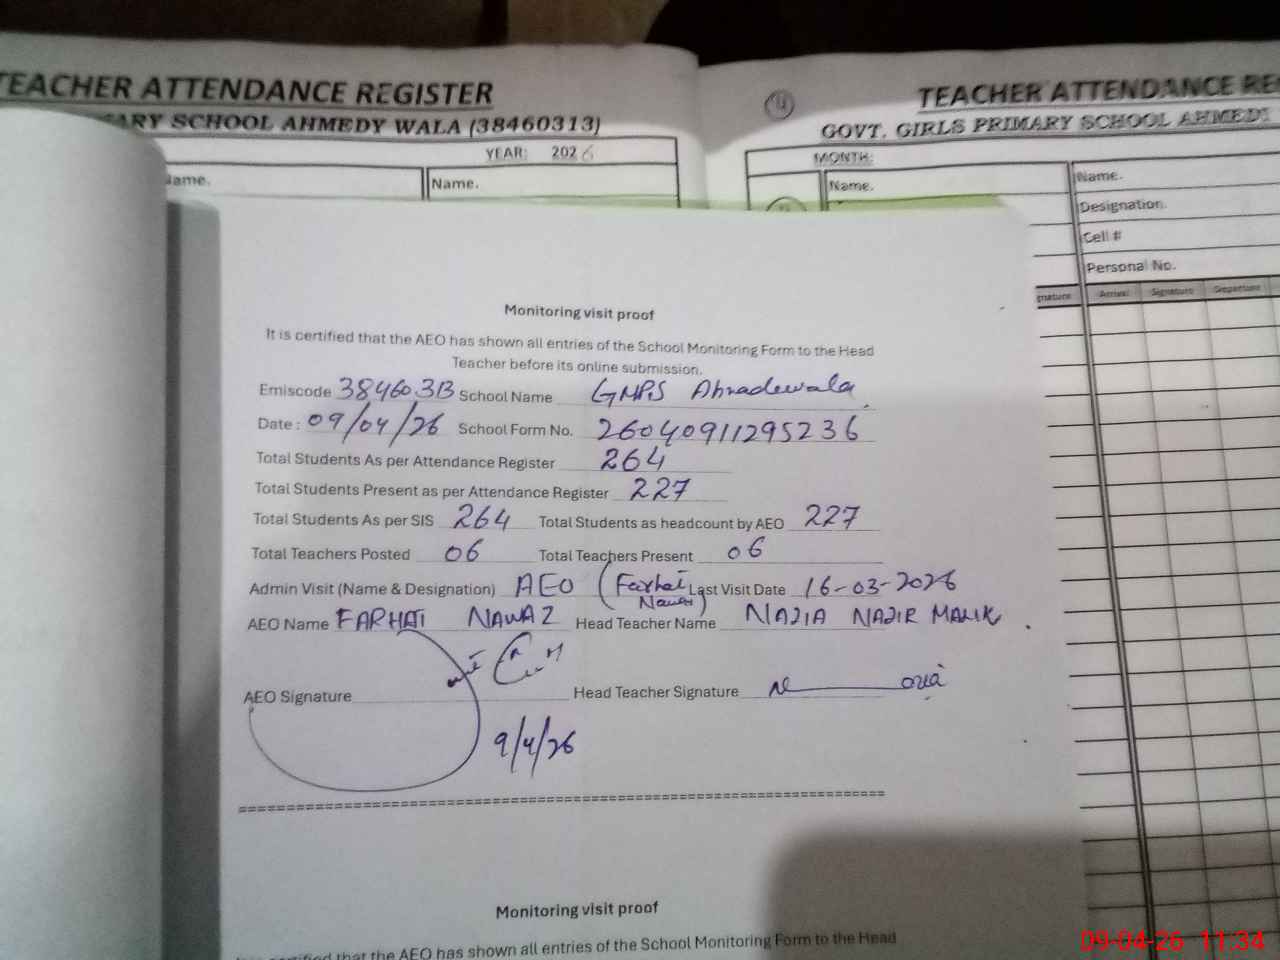 TEACHER ATTENDANCE REGISTER
ARY SCHOOL AHMEDY WALA (38460313)
YEAR: 2026
Name.
Name.
4
TEACHER ATTENDANCE RE
GOVT. GIRLS PRIMARY SCHOOL AHMEDY
MONTH:
Name.
Name.
Designation.
Cell #
Personal No.
gnature Arrival Signature Departure
Monitoring visit proof
It is certified that the AEO has shown all entries of the School Monitoring Form to the Head
Teacher before its online submission.
Emiscode 38460313 School Name GMPS Ahmadewala
Date : 09/04/26 School Form No. 26040911295236
Total Students As per Attendance Register 264
Total Students Present as per Attendance Register 227
Total Students As per SIS 264 Total Students as headcount by AEO 227
Total Teachers Posted 06 Total Teachers Present 06
Admin Visit (Name & Designation) AEO (Farhat Nawaz) Last Visit Date 16-03-2026
AEO Name FARHAT NAWAZ Head Teacher Name NAZIA NAZIR MALIK
AEO Signature Head Teacher Signature
9/4/26
Monitoring visit proof
It is certified that the AEO has shown all entries of the School Monitoring Form to the Head
09-04-26 11:34